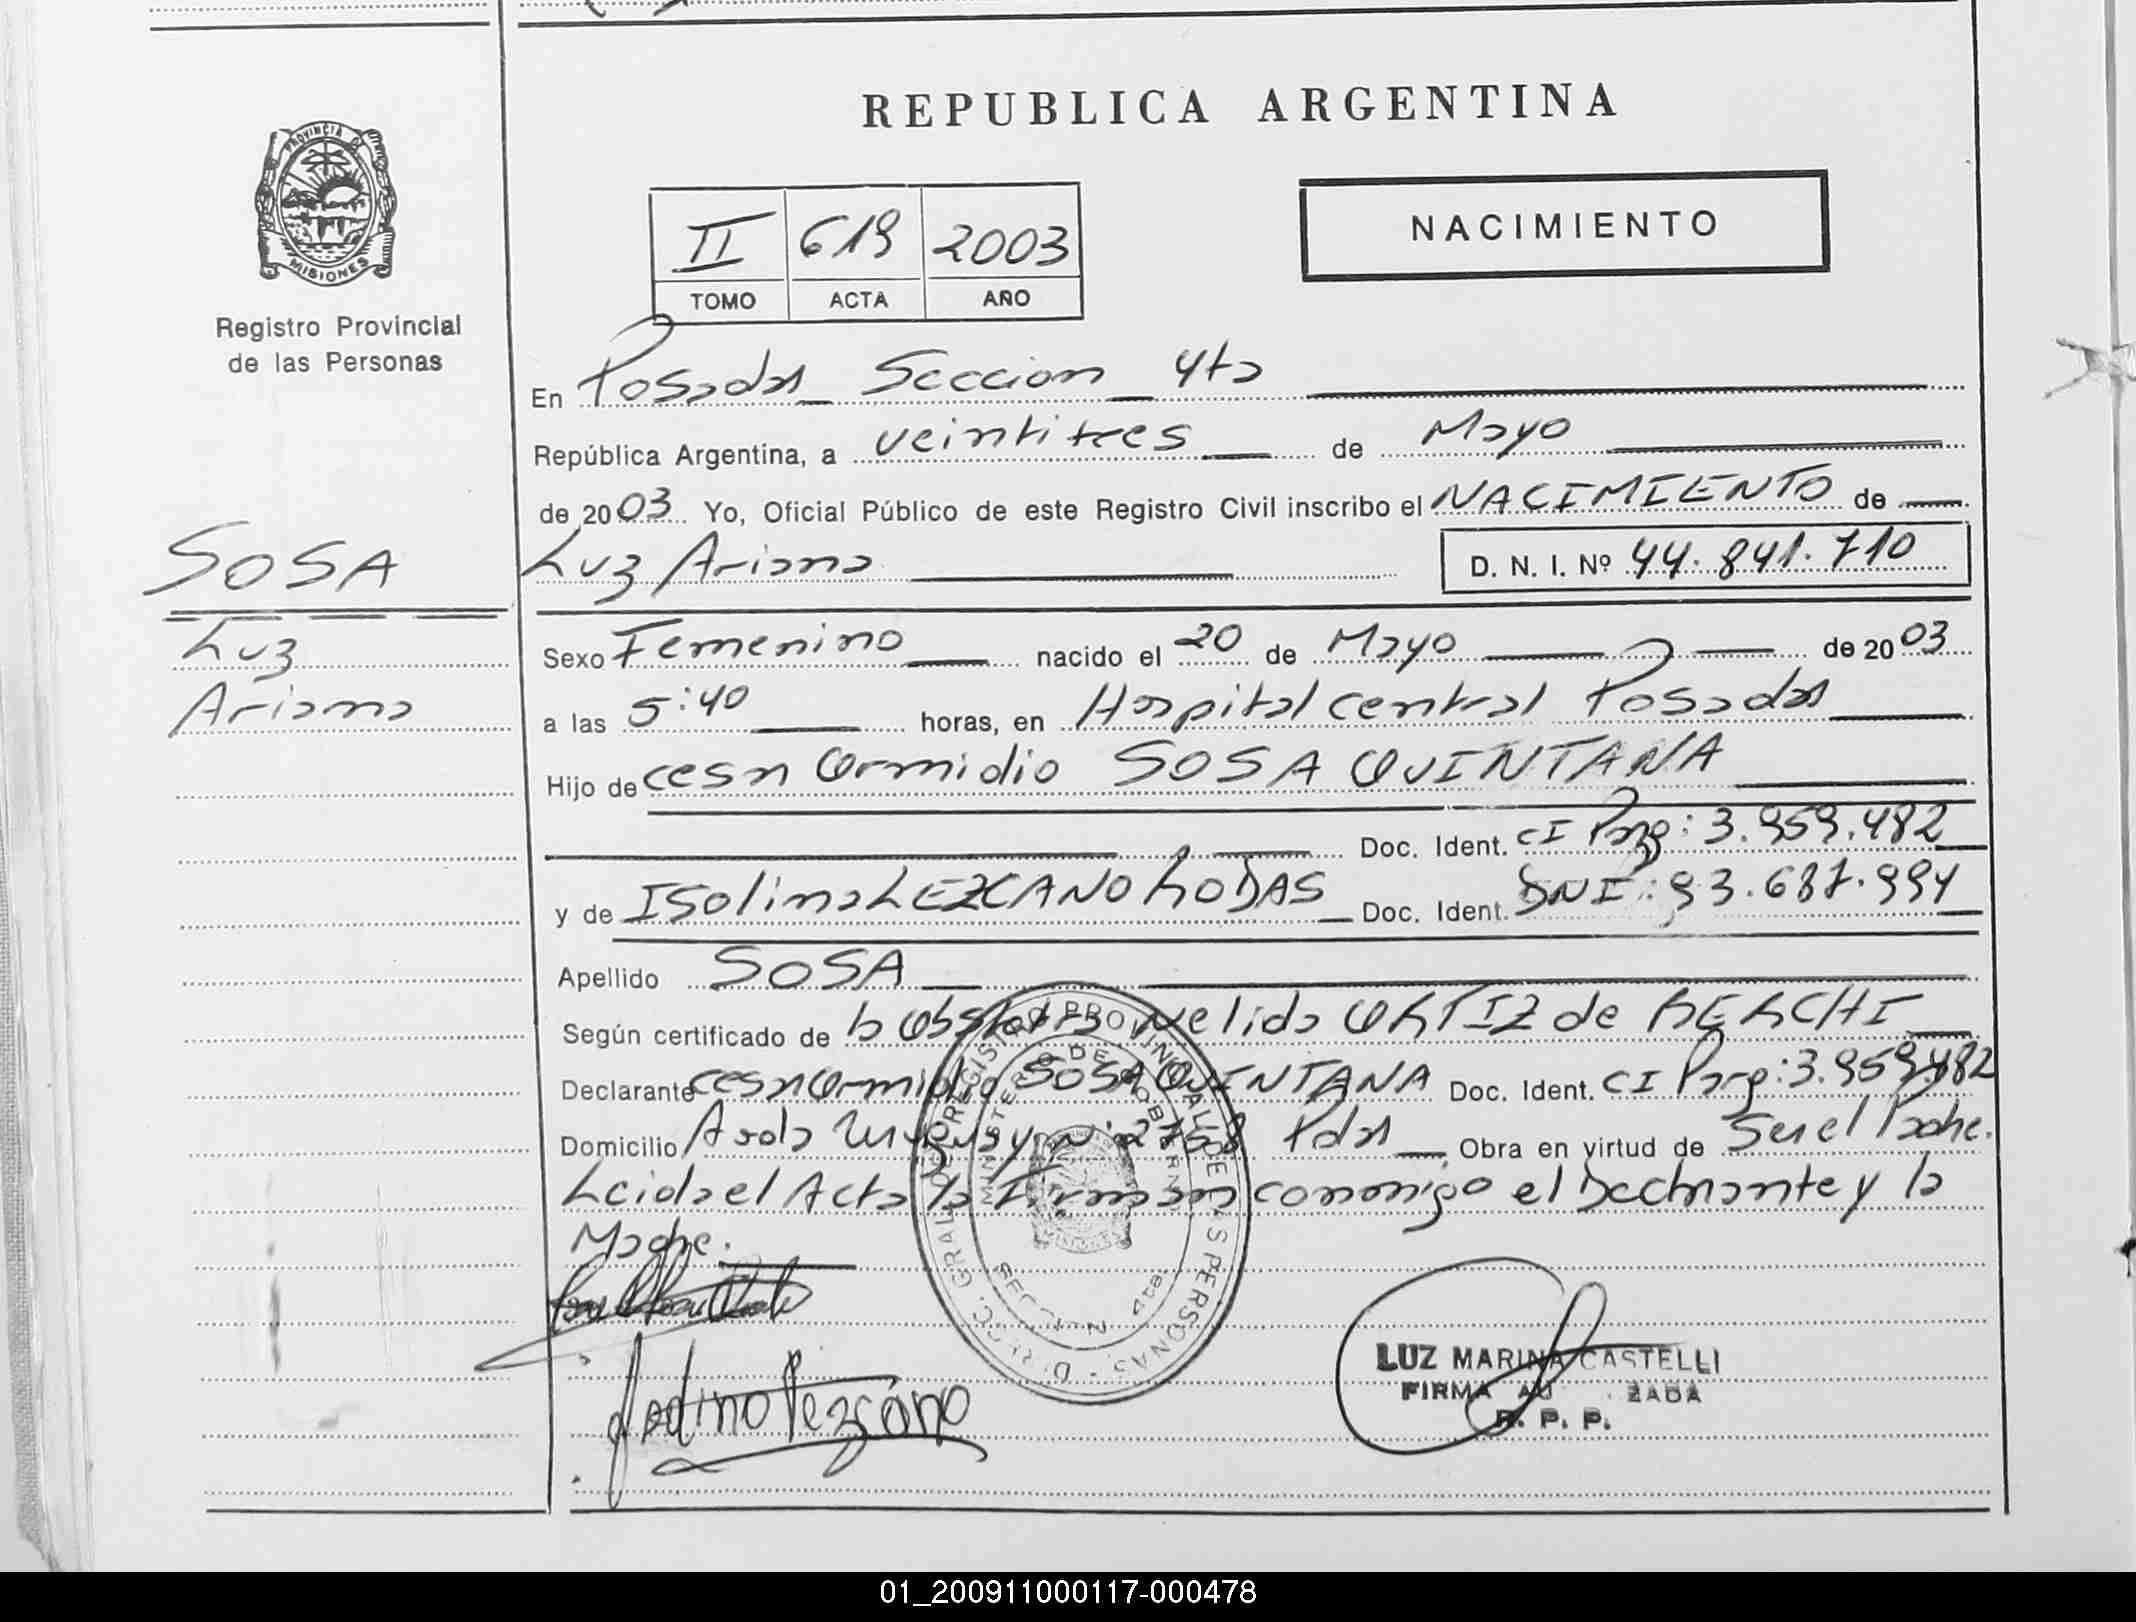 REPUBLICA ARGENTINA
PROVINCIA DE
MISIONES
Registro Provincial
de las Personas
II 619 2003
TOMO ACTA AÑO
NACIMIENTO
En Posadas Seccion 4ta
República Argentina, a veintitres de Mayo
de 2003 Yo, Oficial Público de este Registro Civil inscribo el NACIMIENTO de
SOSA
Luz
Ariana
Luz Ariana D. N. I. Nº 44.841.710
Sexo Femenino nacido el 20 de Mayo de 2003
a las 5:40 horas, en Hospital Central Posadas
Hijo de Cesar Ormidio SOSA QUINTANA
Doc. Ident. CI Parg: 3.959.482
y de ISolina LEZCANO RODAS Doc. Ident. DNI: 93.687.994
Apellido SOSA
Según certificado de la Obstetra Nelida ORTIZ de BERCHI
Declarante Cesar Ormidio SOSA QUINTANA Doc. Ident. CI Parg: 3.959.482
Domicilio Avda Uruguay nº 2768 Pdas Obra en virtud de Ser el Padre.
Leida el Acta la Firman conmigo el Declarante y la
Madre.
DIRECC. GRAL. DEL REGISTRO PROVINCIAL DE LAS PERSONAS
MINISTERIO DE GOBIERNO
SECCION 4ta
LUZ MARINA CASTELLI
FIRMA AU ZADA
R. P. P.
01_200911000117-000478